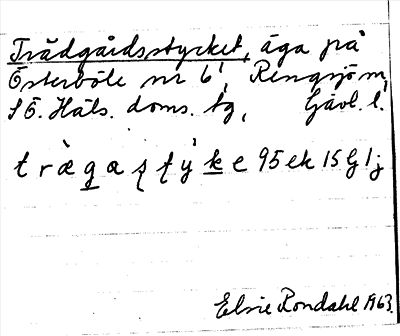 Trädgårdsstycket, äga på
Österböle nr 6¹, Rengsjö m,
SÖ. Häls. doms. tg, Gävl. l.
trægasty̍ke 95 ek 15 G 1j
Elsie Rondahl 1963.